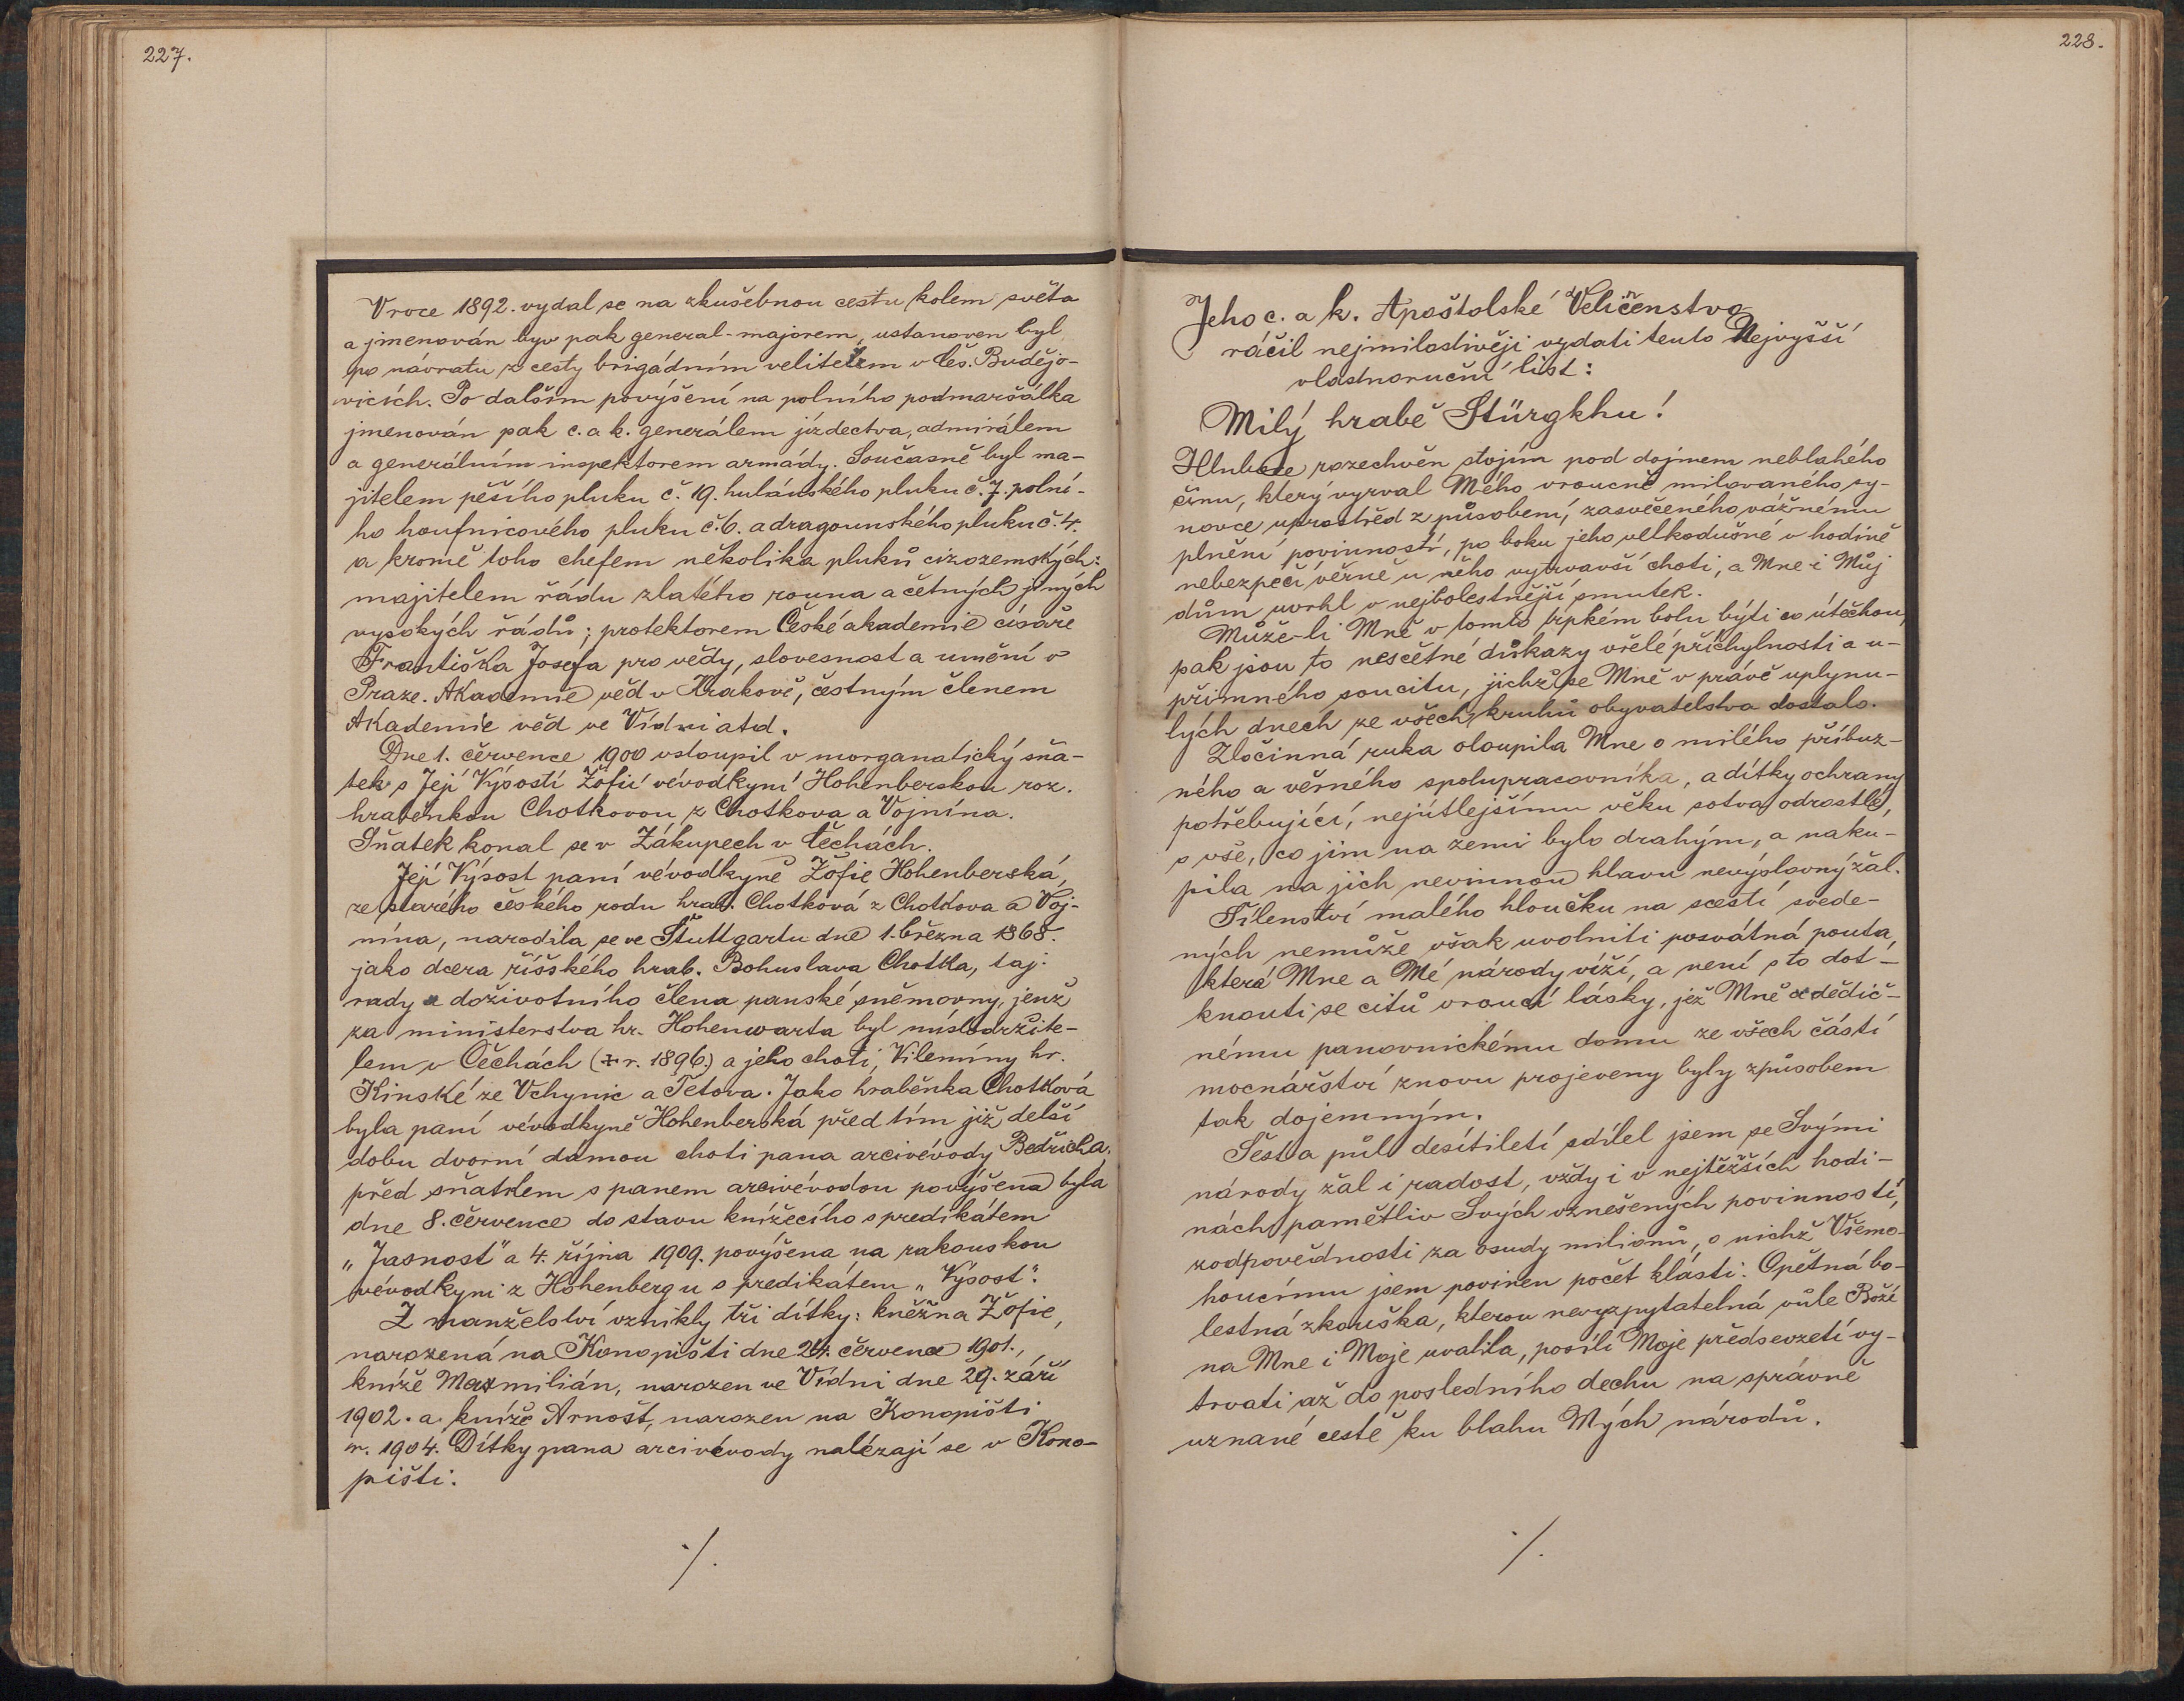 227.
V roce 1892. vydal se na zkušebnou cestu kolem světa
a jmenován byv pak general-majorem, ustanoven byl
po návratu z cesty brigádním velitelem v Čes. Budějo-
vicích. Po dalším povýšení na polního podmaršálka
jmenován pak c. a k. generálem jízdectva, admirálem
a generálním inspektorem armády. Současně byl ma-
jitelem pěšího pluku č. 19. hulánského pluku č. 7. polní-
ho houfnicového pluku č. 6. a dragounského pluku č. 4.
a kromě toho chefem několika pluků cizozemských:
majitelem řádu zlatého rouna a četných jiných
vysokých řádů; protektorem České akademie císaře
Františka Josefa pro vědy, slovesnost a umění v
Praze. Akademie věd v Krakově, čestným členem
Akademie věd ve Vídni atd.
Dne 1. července 1900 vstoupil v morganatický sňa-
tek s Její Výsostí Žofií vévodkyní Hohenberskou roz.
hraběnkou Chotkovou z Chotkova a Vojnína.
Sňatek konal se v Zákupech v Čechách.
Její Výsost paní vévodkyně Žofie Hohenberská,
ze starého českého rodu hrab. Chotková z Chotkova a Voj-
nína, narodila se ve Štuttgartu dne 1. března 1868.
jako dcera říšského hrab. Bohuslava Chotka, taj.
rady a doživotního člena panské sněmovny, jenž
za ministerstva hr. Hohenwarta byl místodržite-
lem v Čechách († r. 1896.) a jeho choti, Vilemíny hr.
Kinské ze Vchynic a Tetova. Jako hraběnka Chotková
byla paní vévodkyně Hohenberská před tím již delší
dobu dvorní dámou choti pana arcivévody Bedřicha.
před sňatkem s panem arcivévodou povýšena byla
dne 8. července do stavu knížecího s predikátem
„Jasnost" a 4. října 1909. povýšena na rakouskou
vévodkyni z Hohenbergu s predikátem „Výsost".
Z manželství vznikly tři dítky: kněžna Žofie,
narozená na Konopišti dne 24. července 1901.,
kníže Maxmilián, narozen ve Vídni dne 29. září
1902. a kníže Arnošt, narozen na Konopišti
r. 1904. Dítky pana arcivévody nalézají se v Kono-
pišti.
./.
228.
Jeho c. a k. Apoštolské Veličenstvo
ráčil nejmilostivěji vydati tento Nejvyšší
vlastnoruční list:
Milý hrabě Stürgkhu!
Hluboce rozechvěn stojím pod dojmem neblahého
činu, který vyrval Mého vroucně milovaného sy-
novce uprostřed z působení, zasvěceného vážnému
plnění povinností, po boku jeho velkodušné v hodině
nebezpečí věrně u něho vytrvavší choti, a Mne i Můj
dům uvrhl v nejbolestnější smutek.
Může-li Mně v tomto trpkém bolu býti co útěchou,
pak jsou to nesčetné důkazy vřelé příchylnosti a u-
přímného soucitu, jichž se Mně v právě uplynu-
lých dnech ze všech kruhů obyvatelstva dostalo.
Zločinná ruka oloupila Mne o milého příbuz-
ného a věrného spolupracovníka, a dítky ochrany
potřebující, nejútlejšímu věku sotva odrostlé,
o vše, co jim na zemi bylo drahým, a naku-
pila na jich nevinnou hlavu nevýslovný žal.
Šílenství malého hloučku na scestí svede-
ných nemůže však uvolniti posvátná pouta,
která Mne a Mé národy víží, a není s to dot-
knouti se citů vroucí lásky, jež Mně a dědič-
nému panovnickému domu ze všech částí
mocnářství znovu projeveny byly způsobem
tak dojemným.
Šest a půl desítiletí sdílel jsem se Svými
národy žal i radost, vždy i v nejtěžších hodi-
nách pamětliv Svých vznešených povinností,
zodpovědnosti za osudy milionů, o nichž Všemo-
houcímu jsem povinen počet klásti. Opětná bo-
lestná zkouška, kterou nevyzpytatelná vůle Boží
na Mne i Moje uvalila, posílí Moje předsevzetí vy-
trvati až do posledního dechu na správně
uznané cestě ku blahu Mých národů.
./.